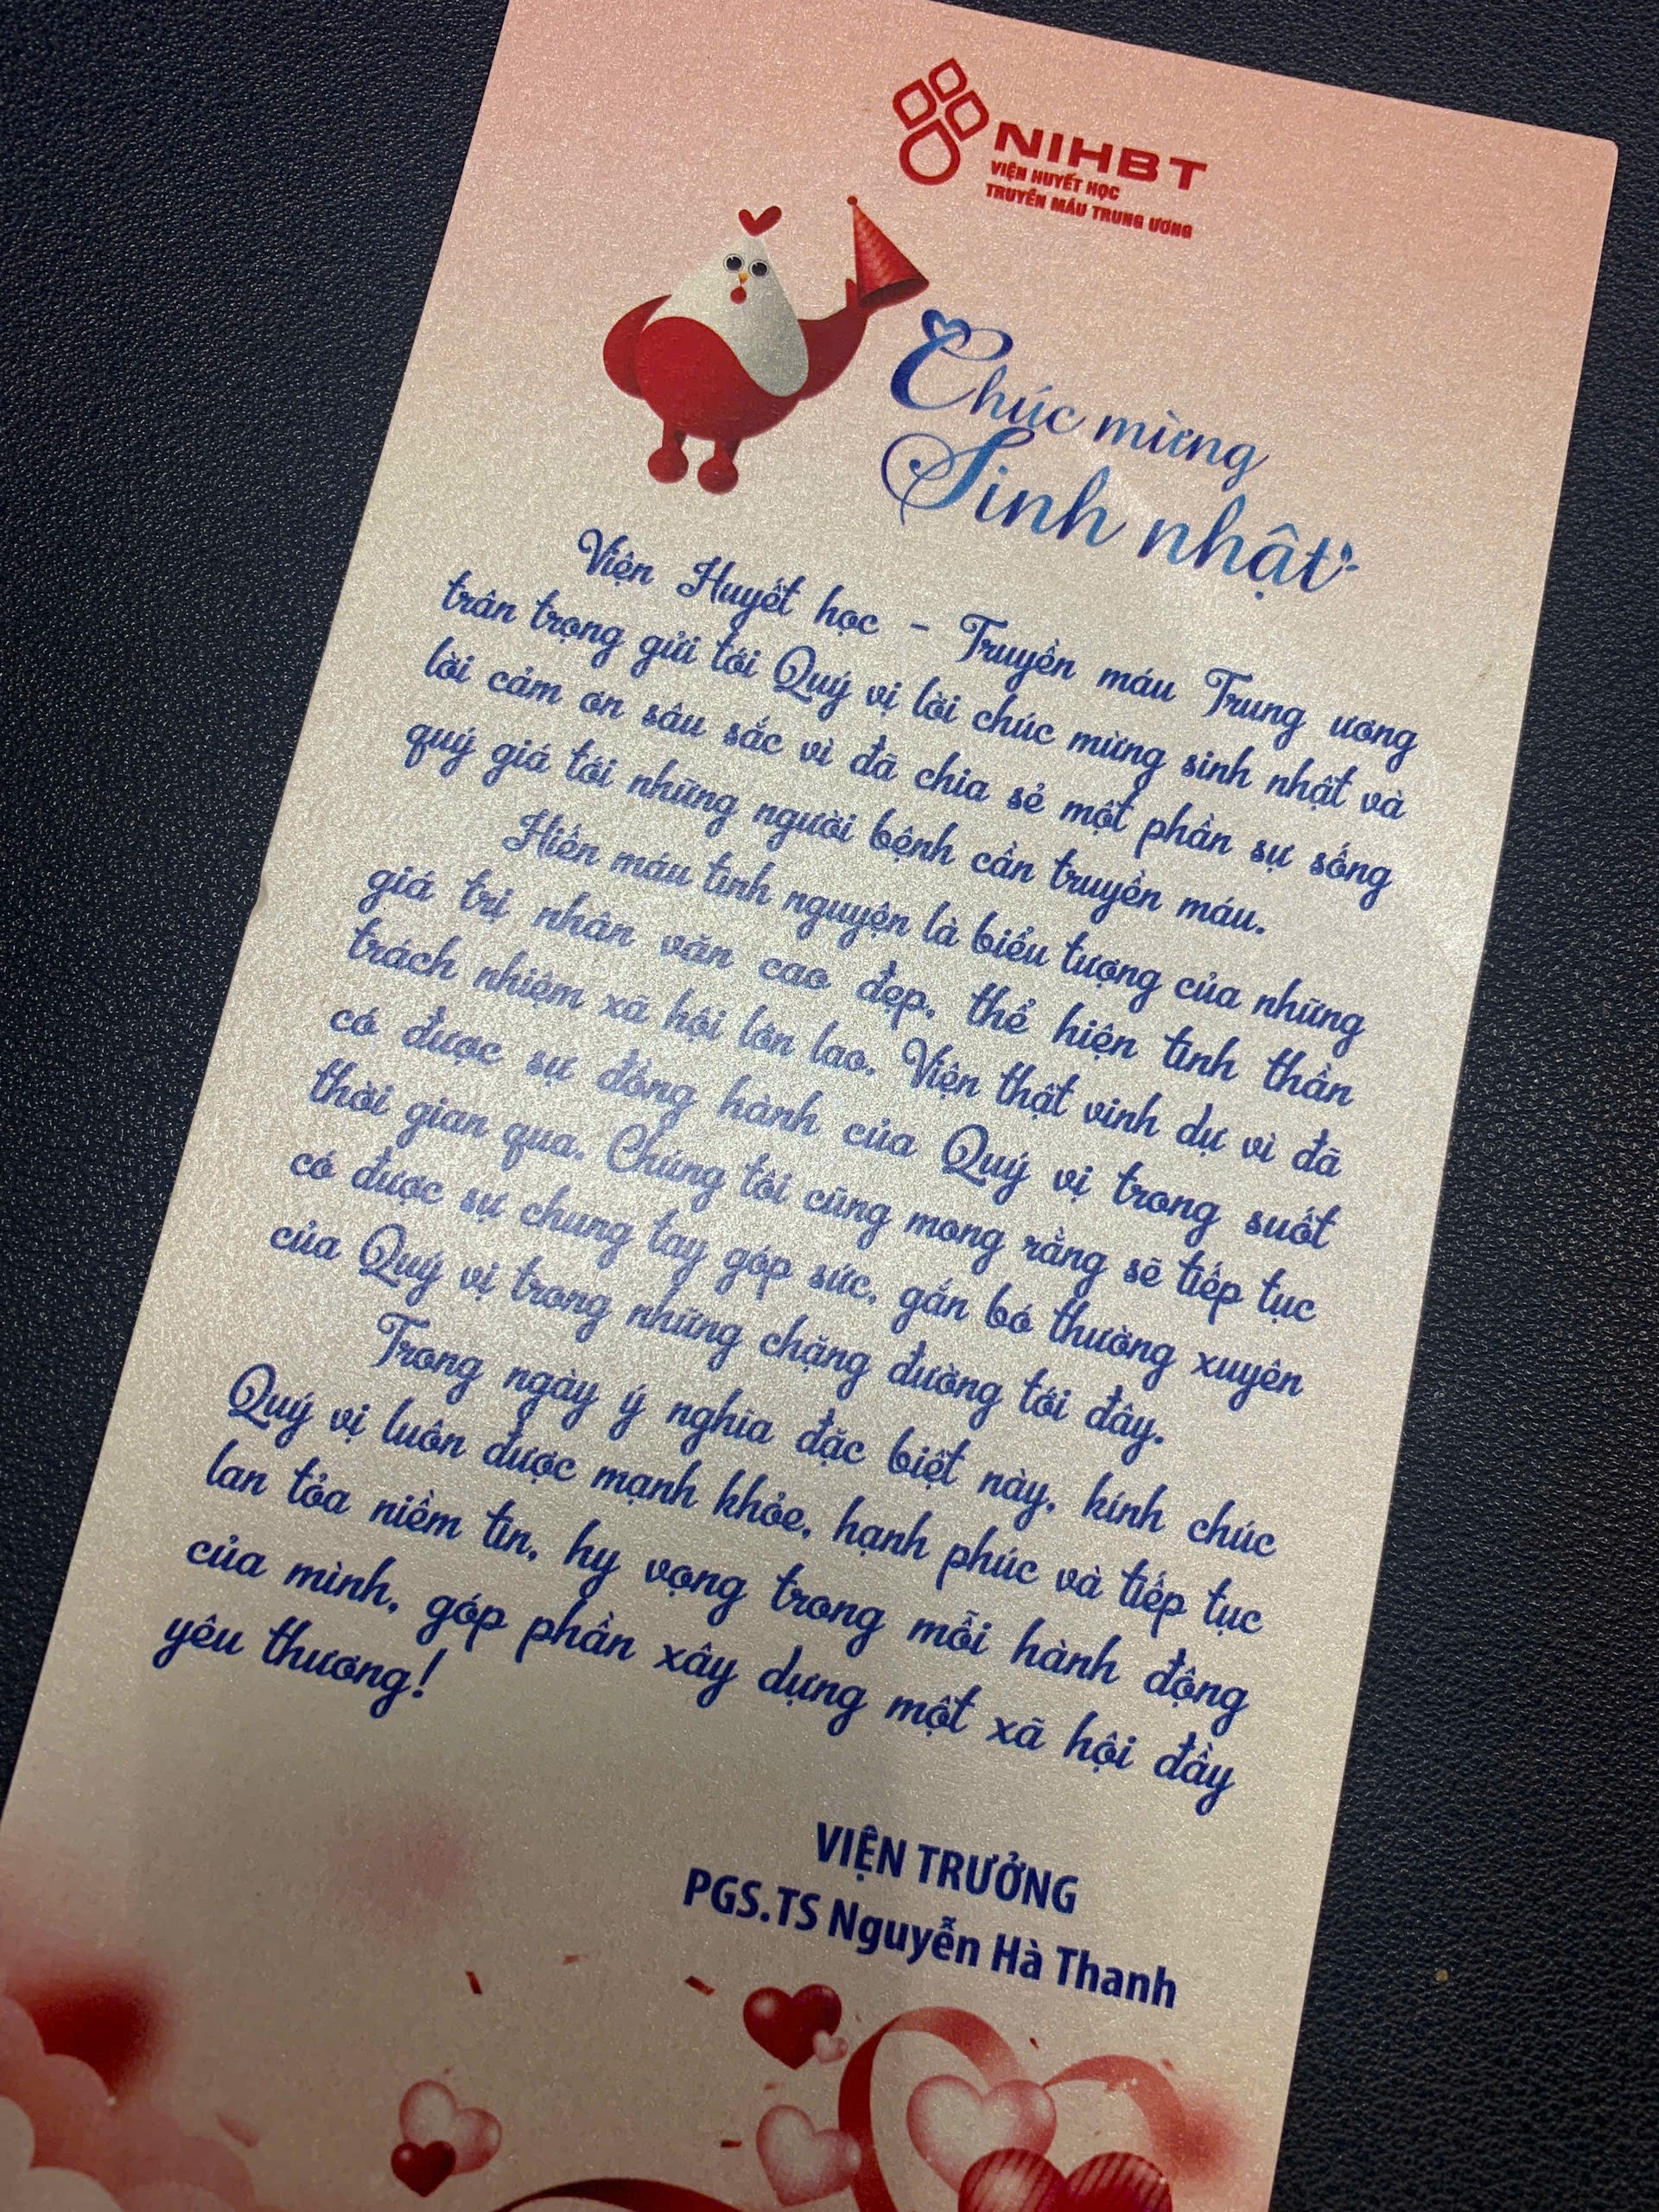 NIHBT
VIỆN HUYẾT HỌC
TRUYỀN MÁU TRUNG ƯƠNG
Chúc mừng
Sinh nhật
Viện Huyết học - Truyền máu Trung ương
trân trọng gửi tới Quý vị lời chúc mừng sinh nhật và
lời cảm ơn sâu sắc vì đã chia sẻ một phần sự sống
quý giá tới những người bệnh cần truyền máu.
Hiến máu tình nguyện là biểu tượng của những
giá trị nhân văn cao đẹp, thể hiện tinh thần
trách nhiệm xã hội lớn lao. Viện thật vinh dự vì đã
có được sự đồng hành của Quý vị trong suốt
thời gian qua. Chúng tôi cũng mong rằng sẽ tiếp tục
có được sự chung tay góp sức, gắn bó thường xuyên
của Quý vị trong những chặng đường tới đây.
Trong ngày ý nghĩa đặc biệt này, kính chúc
Quý vị luôn được mạnh khỏe, hạnh phúc và tiếp tục
lan tỏa niềm tin, hy vọng trong mỗi hành động
của mình, góp phần xây dựng một xã hội đầy
yêu thương!
VIỆN TRƯỞNG
PGS.TS Nguyễn Hà Thanh